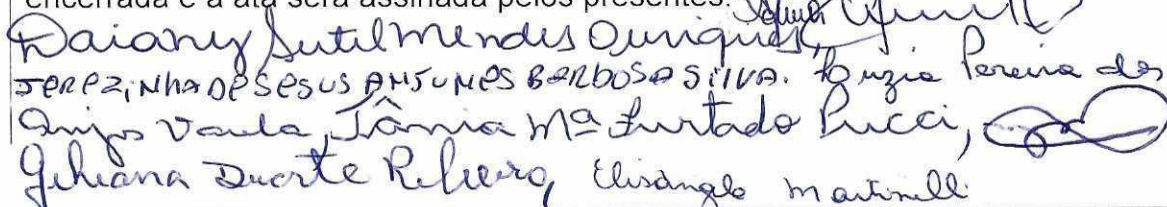 encerrada e a ata será assinada pelos presentes.
Daiany Sutil Mendes Ouriques,
TEREZINHA DE JESUS ANTUNES BARBOSA SILVA. Luzia Pereira dos
Anjos Vaula, Tânia Mª Furtado Pucci,
Duarte Ribeiro, Elisângela Martinelli